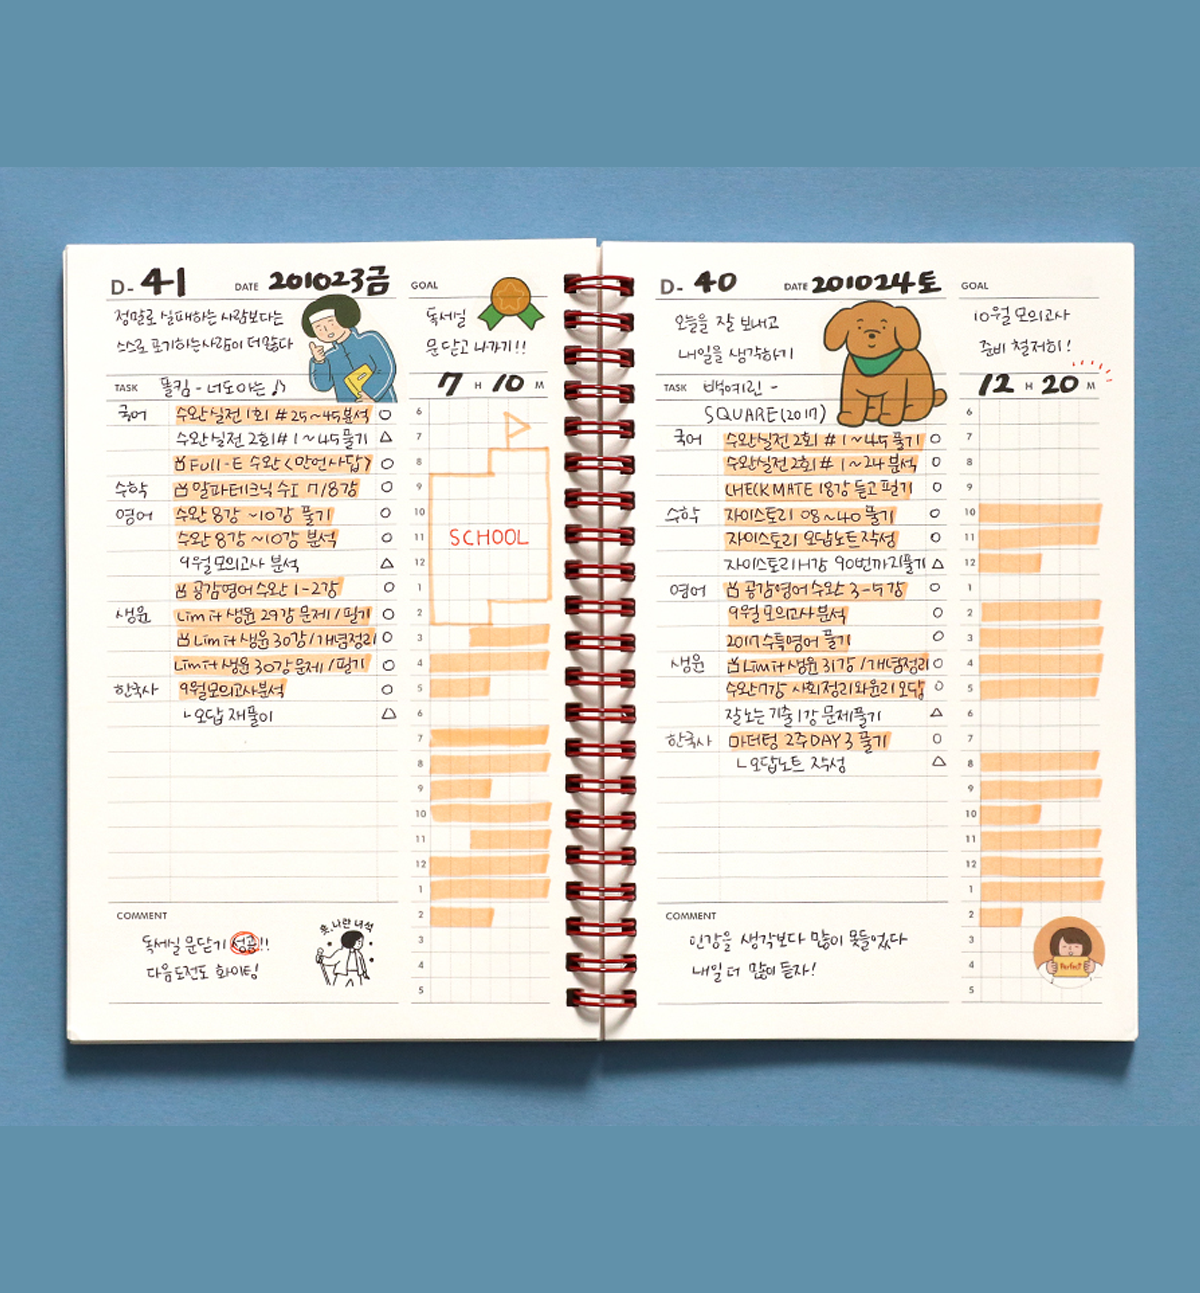 D- 41 DATE 201023금
정말로 실패하는 사람보다는
스스로 포기하는사람이 더많다
TASK 폴킴 - 너도아는 ♪
국어 수완실전 1회 #25~45분석 ○
수완실전 2회# 1~45풀기 △
Full-E 수완<만언사답> ○
수학 알파테크닉 수I 7/8강 ○
영어 수완 8강 ~10강 풀기 ○
수완 8강 ~10강 분석 ○
9월모의고사 분석 △
공감영어수완 1-2강 ○
생윤 Limit 생윤 29강 문제/필기 ○
Limit 생윤 30강/개념정리 ○
Limit 생윤 30강문제/필기 ○
한국사 9월모의고사분석 ○
ㄴ오답 재풀이 △
COMMENT
독세실 문닫기 성공!!
다음도전도 화이팅!
훗, 나란 녀석
GOAL
독세실
문닫고 나가기!!
7 H 10 M
6
7
8
9
10
11
12
1
2
3
4
5
6
7
8
9
10
11
12
1
2
3
4
5
SCHOOL
D- 40 DATE 201024토
오늘을 잘 보내고
내일을 생각하기
TASK 백예린 -
SQUARE(2017)
국어 수완실전 2회 #1~45 풀기 ○
수완실전 2회 #1~24 분석 ○
CHECKMATE 18강 듣고 필기 ○
수학 자이스토리 08~40 풀기 ○
자이스토리 오답노트작성 ○
자이스토리 H강 90번까지풀기 △
영어 공감영어수완 3-5강 ○
9월 모의고사분석 ○
2017수특영어 풀기 ○
생윤 Limit 생윤 31강/개념정리 ○
수완7강 사회정의와윤리 오답 ○
잘노는기출1강 문제풀기 △
한국사 마더텅 2주DAY3 풀기 ○
ㄴ오답노트 작성 △
COMMENT
인강을 생각보다 많이 못들었다
내일 더 많이 듣자!
GOAL
10월 모의고사
준비 철저히!
12 H 20 M
6
7
8
9
10
11
12
1
2
3
4
5
6
7
8
9
10
11
12
1
2
3
4
5
Perfect